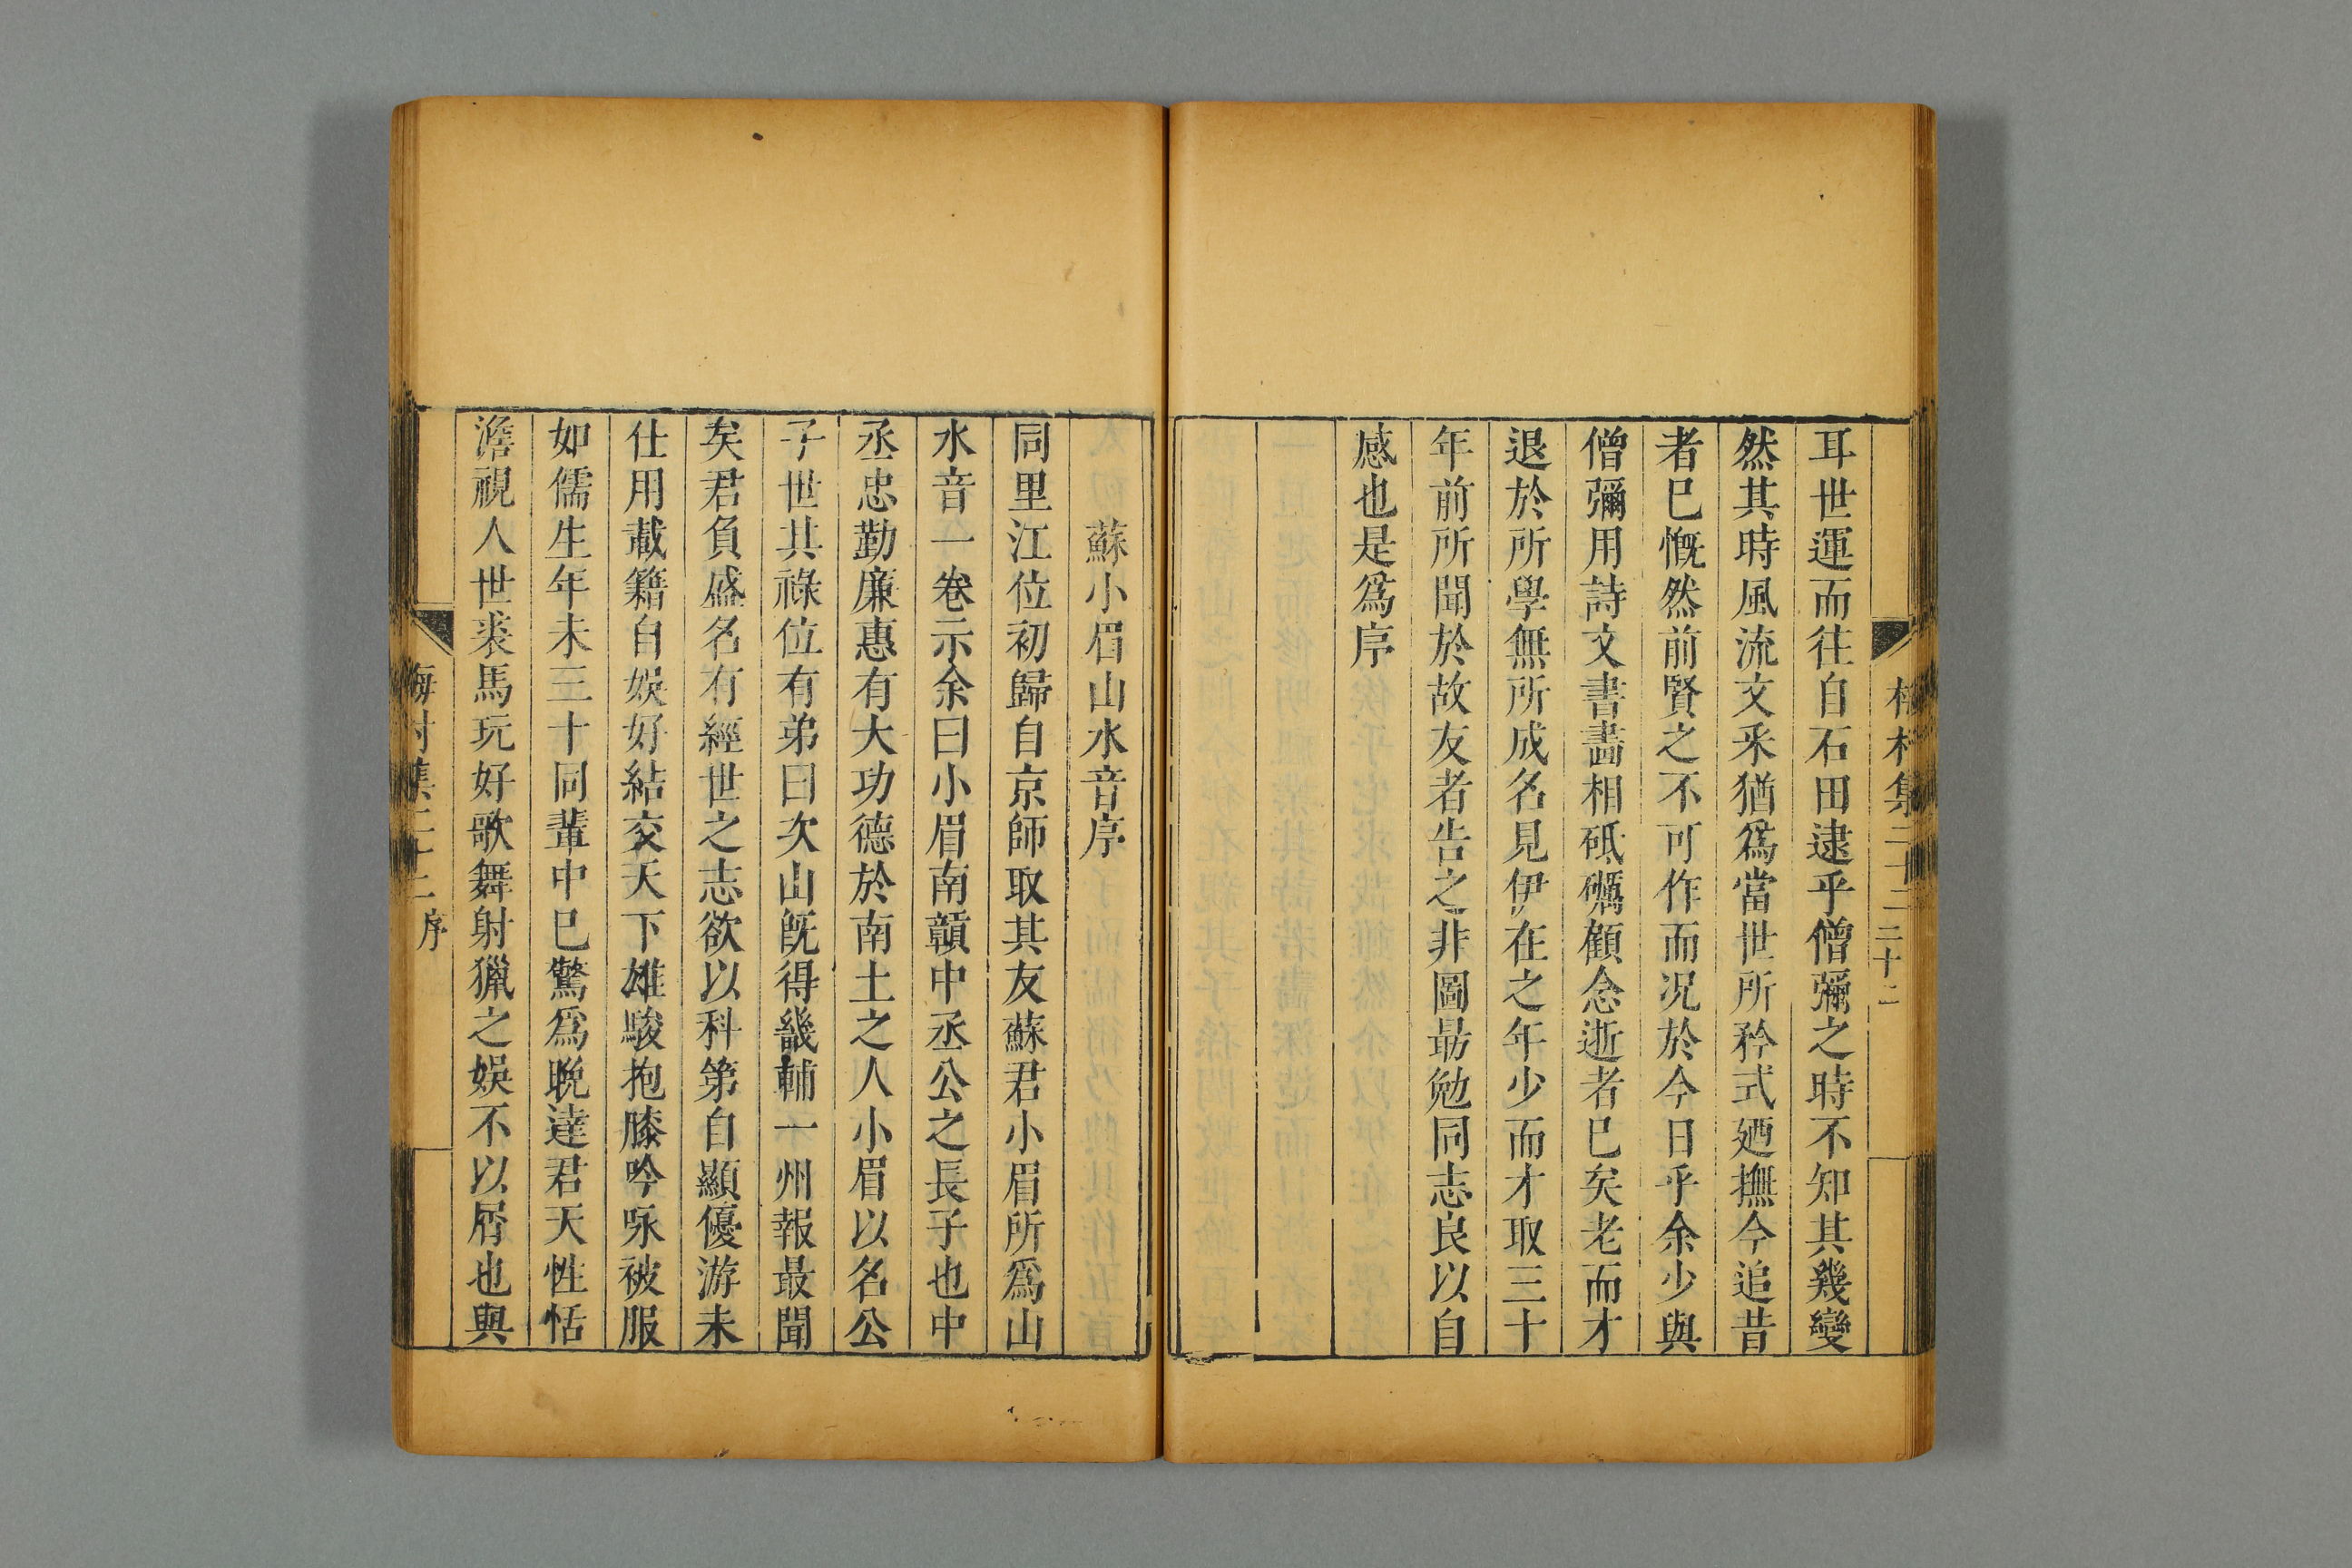 梅村集二十二 二十二
耳世運而往自石田逮乎僧彌之時不知其幾變
然其時風流文采猶爲當世所矜式廼撫今追昔
者已慨然前賢之不可作而况於今日乎余少與
僧彌用詩文書畵相砥礪顧念逝者已矣老而才
退於所學無所成名見伊在之年少而才取三十
年前所聞於故友者告之非圖最勉同志良以自
感也是爲序
蘇小眉山水音序
同里江位初歸自京師取其友蘇君小眉所爲山
水音一卷示余曰小眉南贛中丞公之長子也中
丞忠勤廉惠有大功德於南土之人小眉以名公
子世其祿位有弟曰次山旣得畿輔一州報最聞
矣君負盛名有經世之志欲以科第自顯優游未
仕用載籍自娛好結交天下雄駿抱膝吟咏被服
如儒生年未三十同輩中已驚爲晚達君天性恬
澹視人世裘馬玩好歌舞射獵之娛不以屑也與
梅村集二十二 序